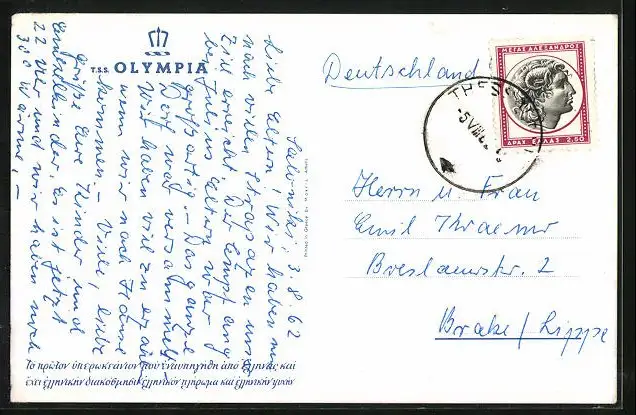 T.S.S. OLYMPIA
Saloniki, 3.8.62
Liebe Eltern, Wir haben nun
nach vielen Strapazen unser
Ziel erreicht. Der Empfang
bei Juli's Eltern war
großartig. – Das ganze
Dorf war versammelt
Wir haben viel zu erzählen
wenn wir nach Hause
kommen – Viele, liebe
Grüße Eure Kinder und
Enkelkinder. Es ist jetzt
22 Uhr und wir haben noch
30° Wärme. –
Τὸ πρῶτον ὑπερωκεάνιον ποὺ ἐναυπηγήθη ἀπὸ Ἕλληνας καὶ
ἔχει ἑλληνικὴν διακόσμησιν ἑλληνικὸν πλήρωμα καὶ ἑλληνικὴν ψυχὴν
Deutschland
ΜΕΓΑΣ ΑΛΕΞΑΝΔΡΟΣ
ΔΡΑΧ ΕΛΛΑΣ 2.50
THESS
5 VIII
Herrn u. Frau
Emil
Breslauerstr. 2
Brake / Lippe